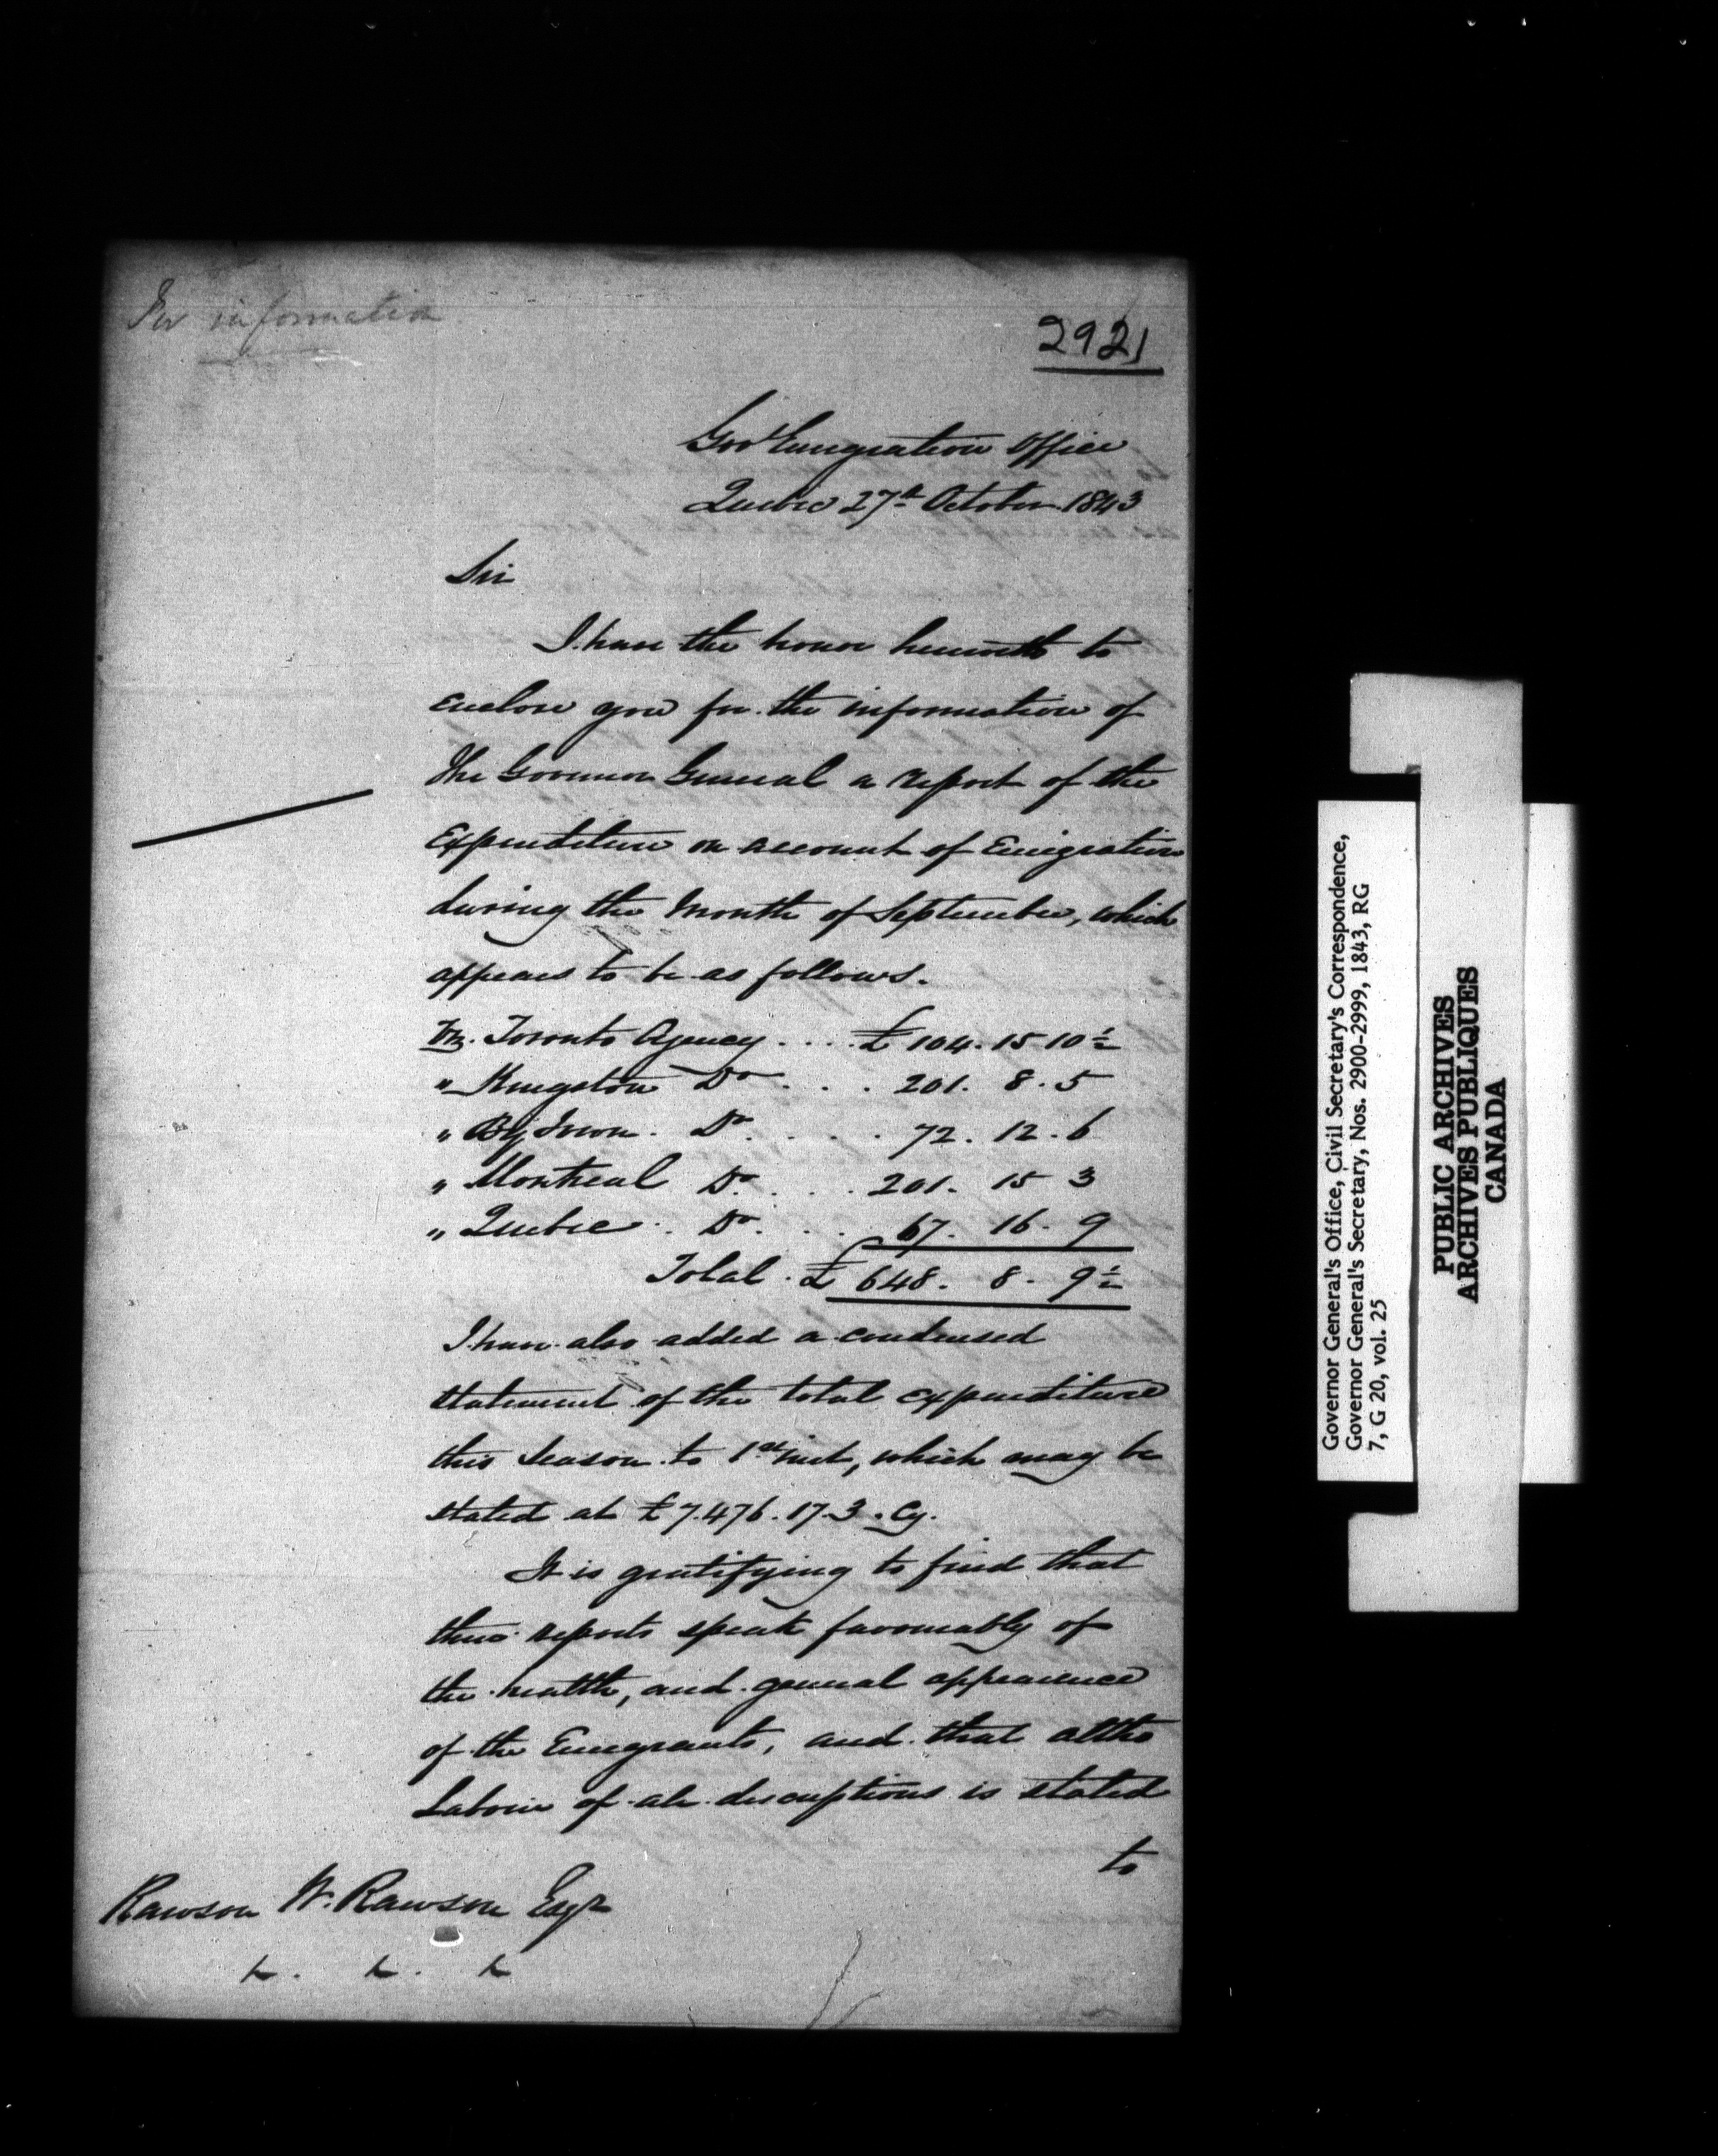 For information
2921
Gov Emigration Office
Quebec 27th October 1843
Sir
I have the honor herewith to
enclose you for the information of
The Governor General a report of the
Expenditure on account of Emigration
during the Month of September, which
appears to be as follows.
Toronto Agency . . . . £ 104. 15 10½
" Kingston Do . . . 201. 8. 5
" By Town. Do. . . . . 72. 12. 6
" Montreal Do. . . . 201. 15 3
" Quebec . Do . . . 67. 16. 9
Total. £ 648. 8. 9½
I have also added a condensed
statement of the total expenditure
this Season to 1st inst, which may be
stated at £7.476.17.3. Cy.
It is gratifying to find that
these reports speak favourably of
the health, and general appearance
of the Emigrants, and that altho
Labour of all descriptions is stated
to
Rawson W. Rawson Esqr
Governor General's Office, Civil Secretary's Correspondence,
Governor General's Secretary, Nos. 2900-2999, 1843, RG
7, G 20, vol. 25
PUBLIC ARCHIVES
ARCHIVES PUBLIQUES
CANADA